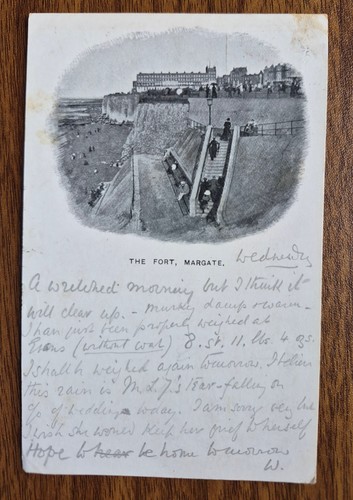 THE FORT, MARGATE.
Wednesday
A wretched morning but I think it
will clear up. - murky damp & warm -
I have just been properly weighed at
(without coat) 8. st. 11. lbs 4 ozs.
I shall be weighed again tomorrow. I believe
this rain is M.L.J.'s tears - falling on
of wedding today. I am sorry very but
I wish she would keep her grief to herself
Hope to hear be home tomorrow
W.